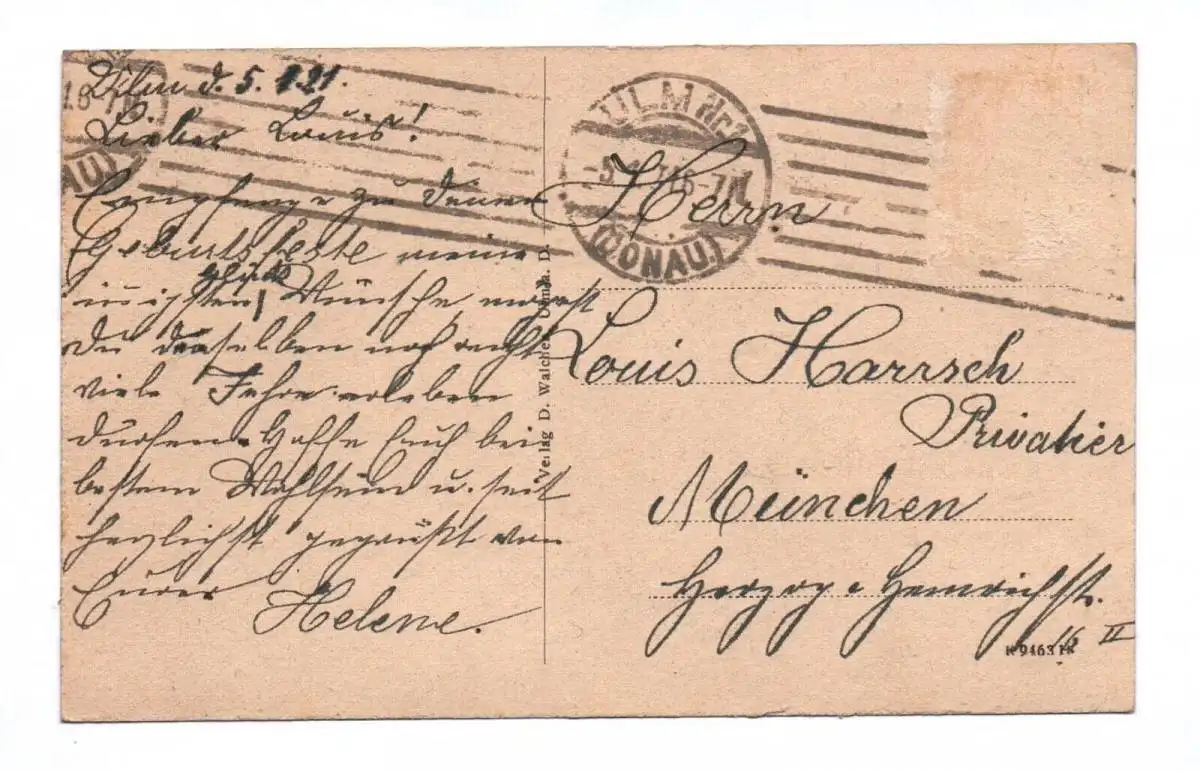 Ulm d. 5.1.21.
Lieber Louis!
Empfange zu Deinem
Geburtsfeste meine
innigsten Glück
Wünsche, mögest
Du denselben noch recht
viele Jahre erleben
dürfen. Hoffe Euch bei
bestem Wohlsein u. seit
herzlichst gegrüßt von
Eurer Helene.
Verlag D. Walcher, Ulm a. D.
ULM Nr.1
-5.1. 6-7N.
(DONAU.)
Herrn
Louis Harrsch
Privatier
München
Herzog-Heinrichstr.
16 II
K 9463